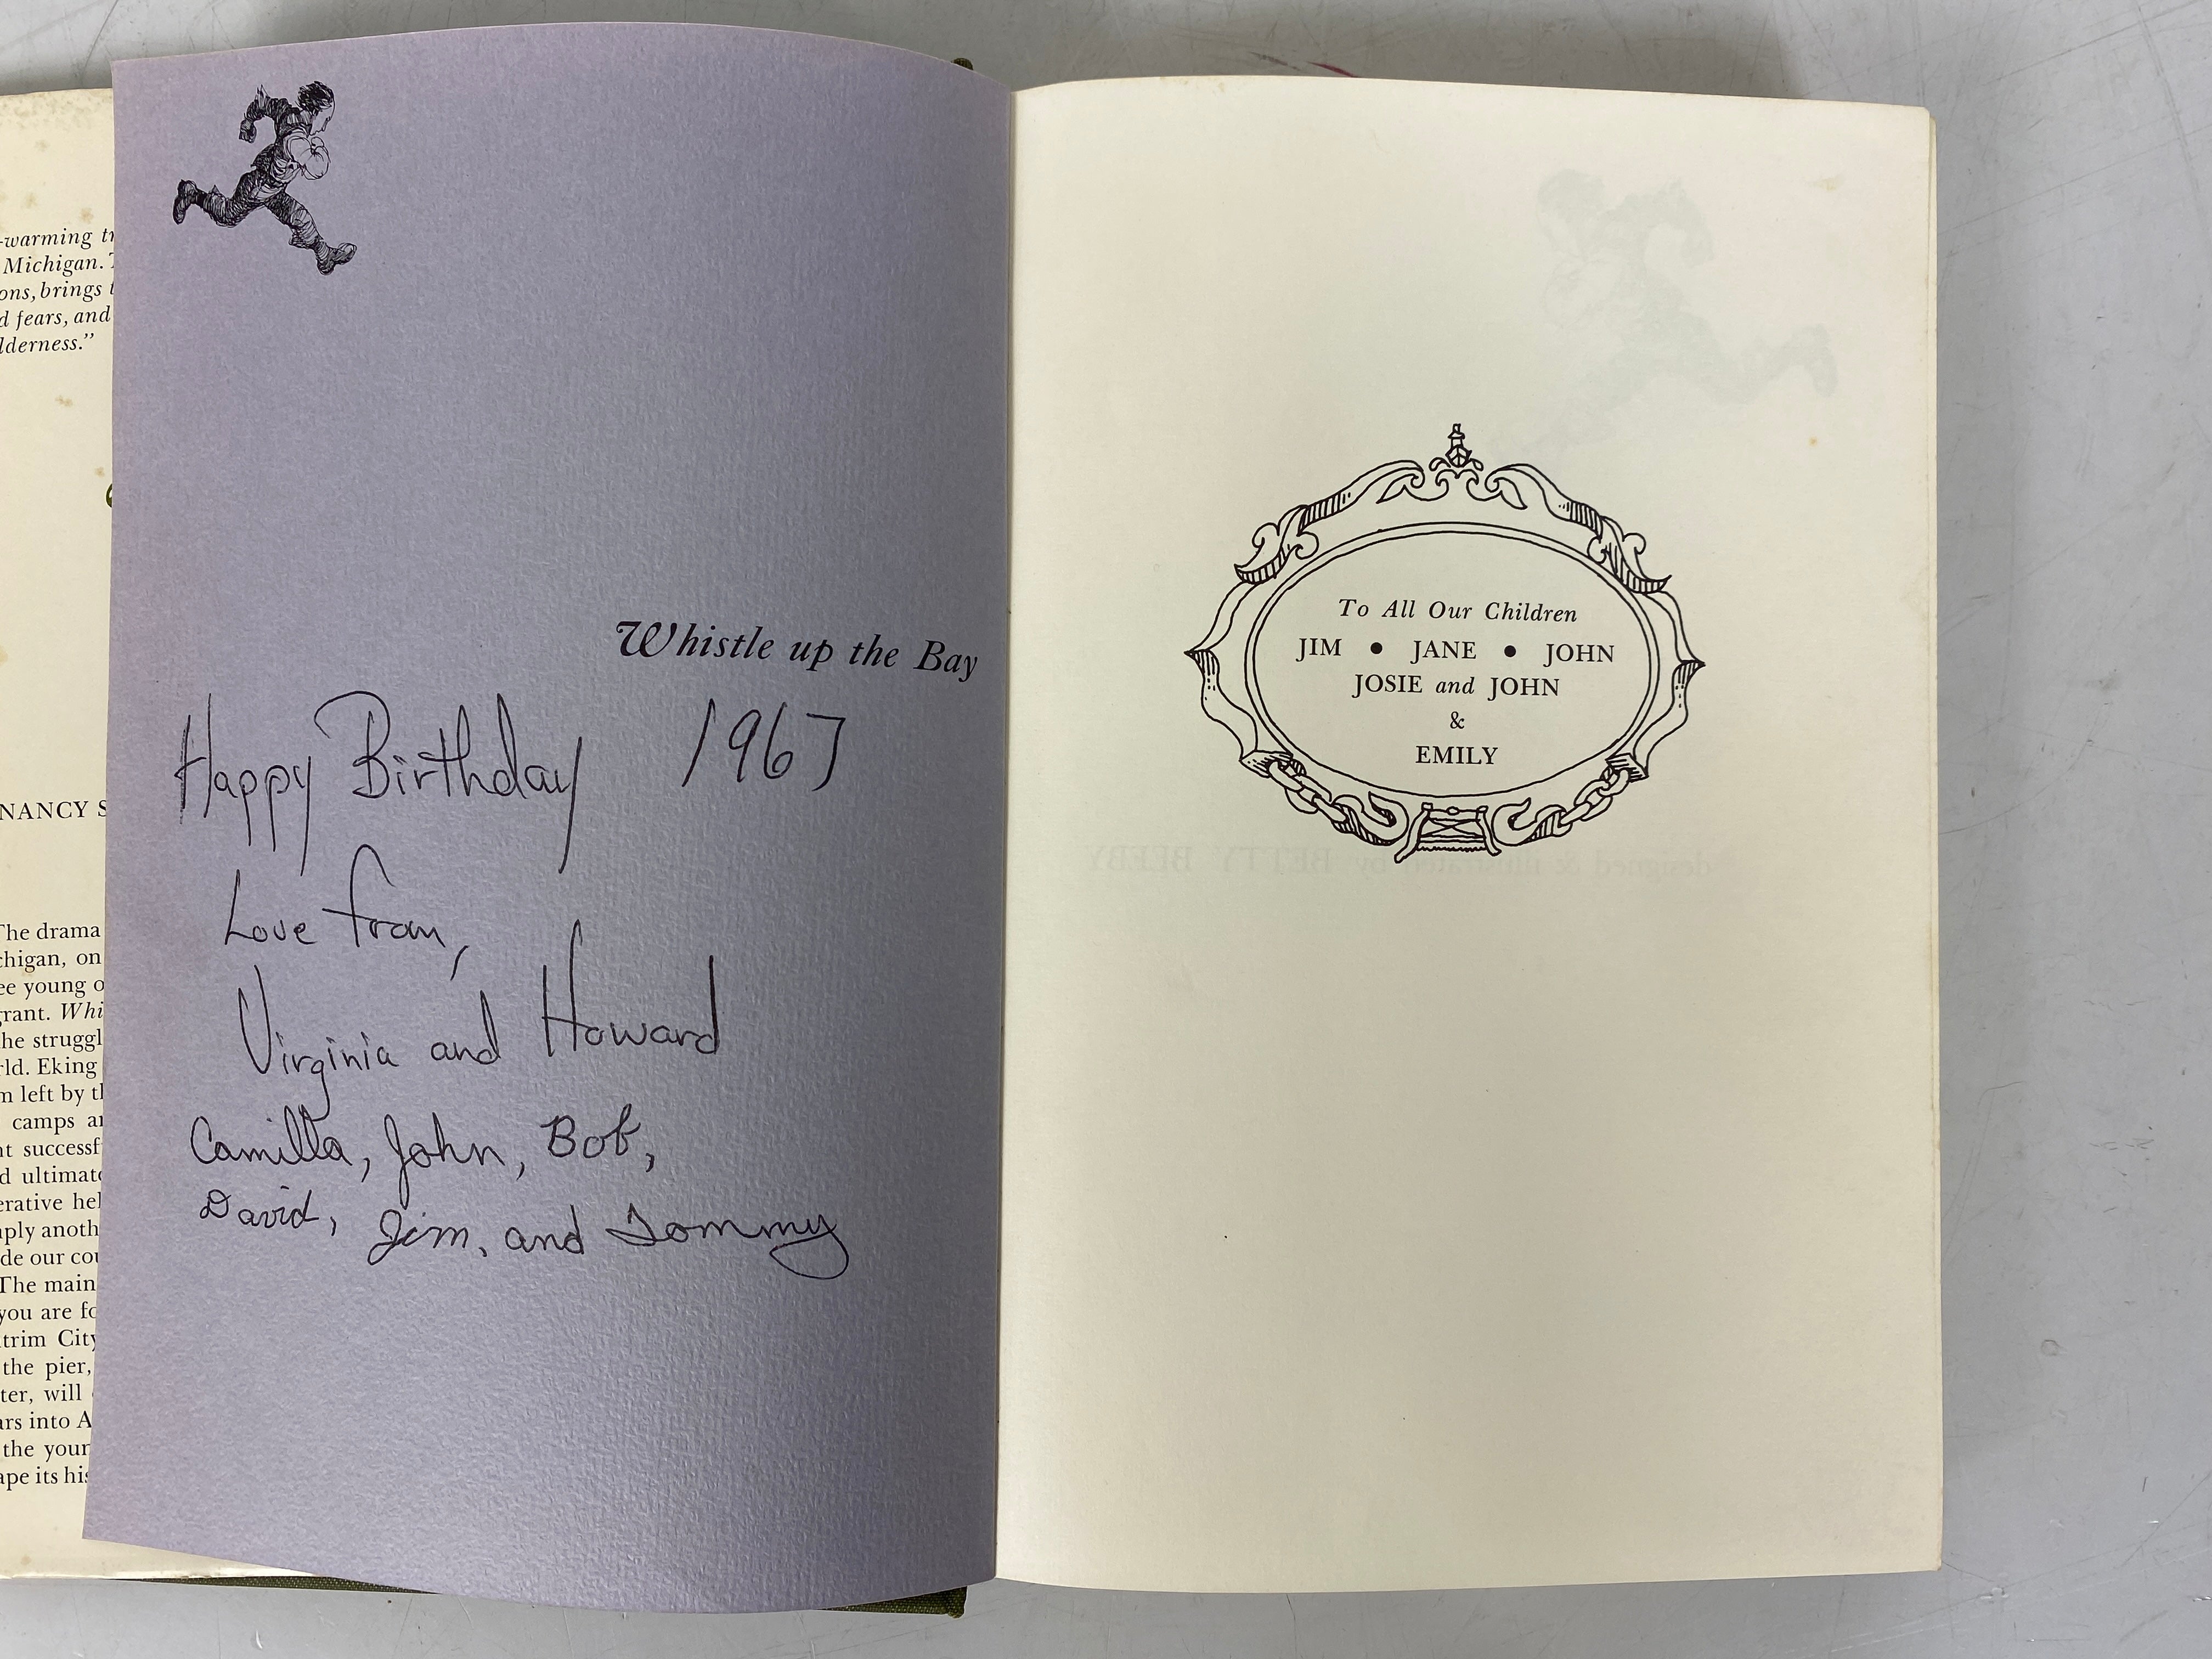 -warming tr
Michigan. T
ons, brings t
d fears, and
lderness."
NANCY S
The drama
chigan, on
ee young o
grant. Whi
he struggl
rld. Eking
m left by th
camps an
nt successf
d ultimate
erative hel
ply anoth
de our cou
The main
you are fo
trim City
the pier,
ter, will
ars into A
the your
ape its his
Whistle up the Bay
Happy Birthday 1967
Love from,
Virginia and Howard
Camilla, John, Bob,
David, Jim, and Tommy
To All Our Children
JIM • JANE • JOHN
JOSIE and JOHN
&
EMILY
designed & illustrated by BETTY BEEBY